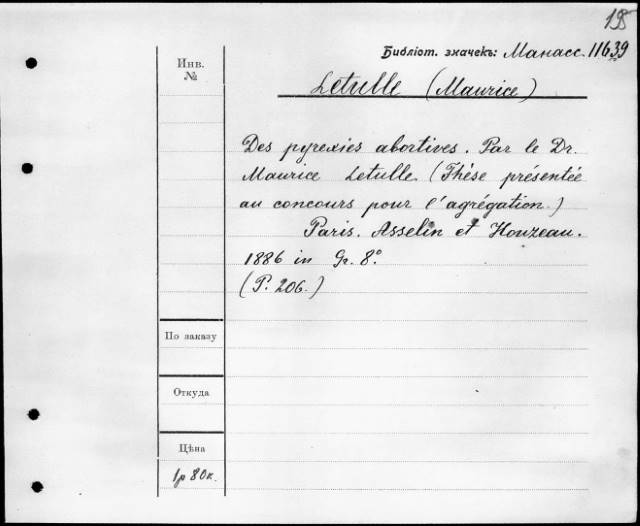 195
Библіот. значекъ: Манасс. 11639
Инв.
№
Letulle (Maurice)
Des pyrexies abortives. Par le Dr.
Maurice Letulle. (Thèse présentée
au concours pour l'agrégation.)
Paris. Asselin et Houzeau.
1886 in Gr. 8º.
(P. 206.)
По заказу
Откуда
Цѣна
1р 80к.